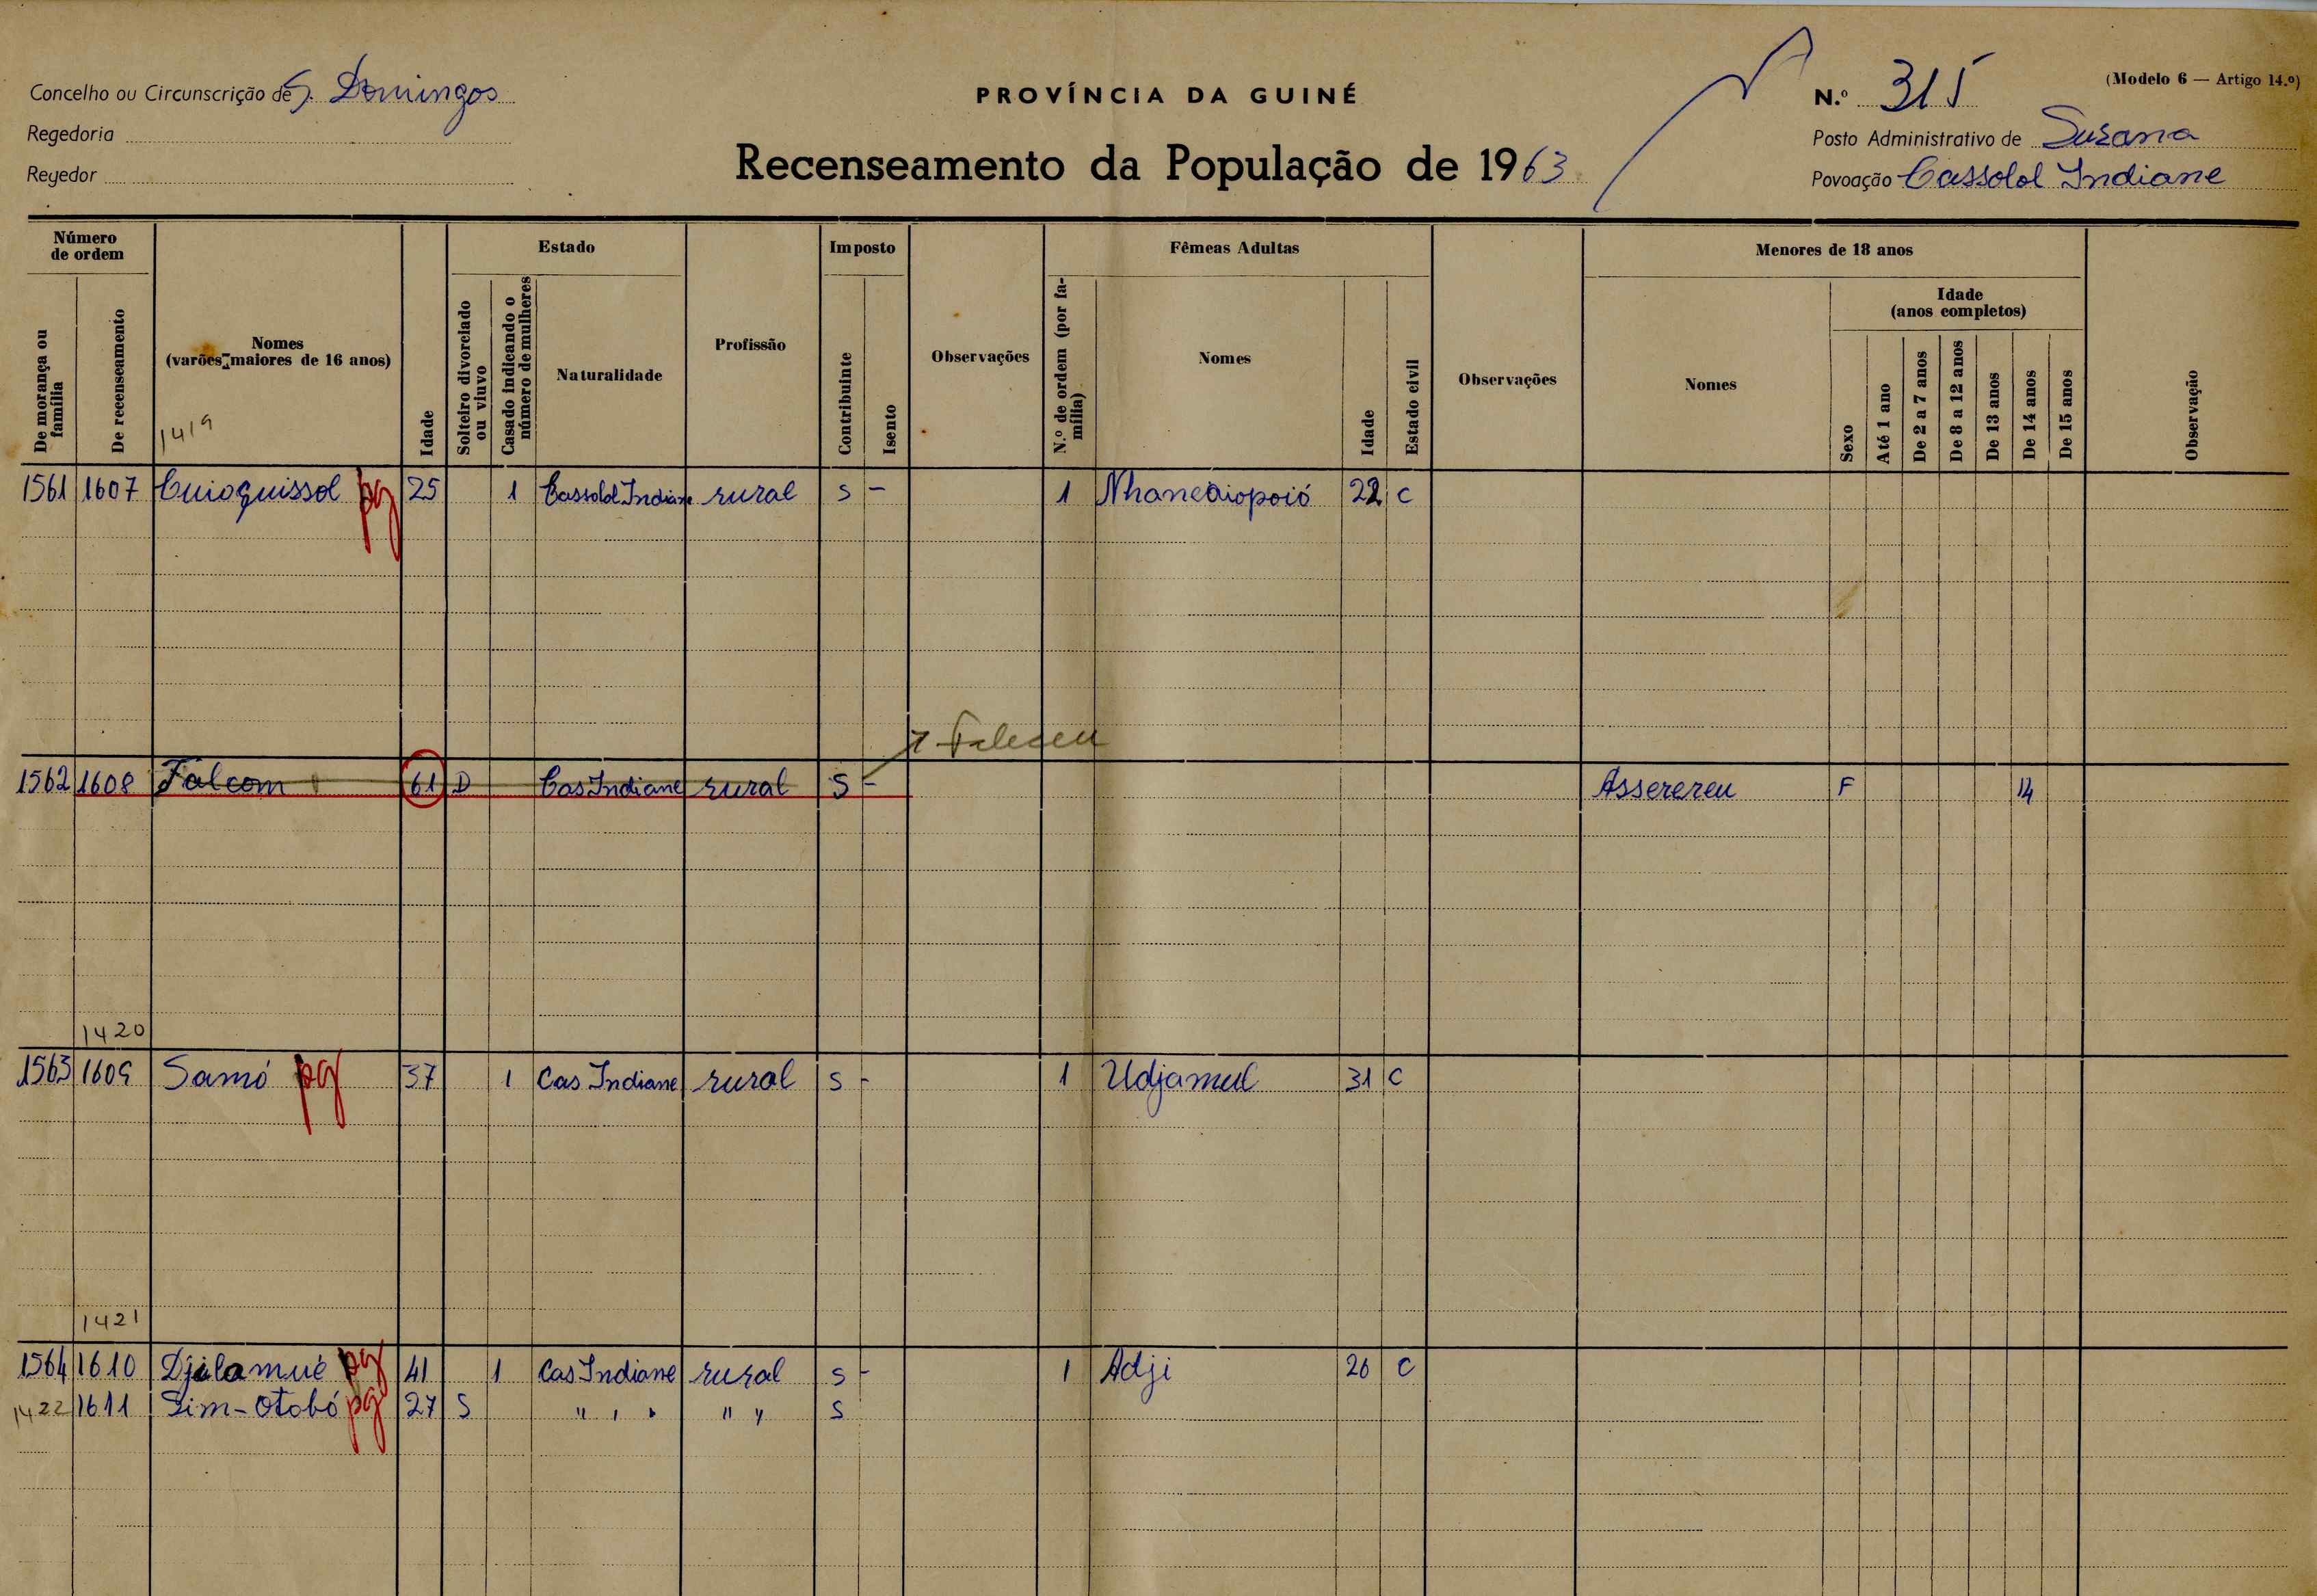 Concelho ou Circunscrição de S. Domingos
Regedoria
Regedor
PROVÍNCIA DA GUINÉ
Recenseamento da População de 1963
(Modelo 6 — Artigo 14.º)
N.º 315
Posto Administrativo de Susana
Povoação Cassolol Indiane
Número de ordem
De morança ou família
De recenseamento
Nomes
(varões maiores de 16 anos)
1419
Idade
Estado
Solteiro divorciado ou viuvo
Casado indicando o número de mulheres
Naturalidade
Profissão
Imposto
Contribuinte
Isento
Observações
Fêmeas Adultas
N.º de ordem (por família)
Nomes
Idade
Estado civil
Observações
Menores de 18 anos
Nomes
Sexo
Idade
(anos completos)
Até 1 ano
De 2 a 7 anos
De 8 a 12 anos
De 13 anos
De 14 anos
De 15 anos
Observação
1561 1607 Cuioquissol pg 25 1 Cassolol Indiane rural S - 1 Nhaneaiopoió 22 C
Faleceu
1562 1608 Falcom 61 D Cas Indiane rural S - Asserereu F 14
1420
1563 1609 Samó pg 37 1 Cas Indiane rural S - 1 Udjamul 31 C
1421
1564 1610 Djilamué pg 41 1 Cas Indiane rural S - 1 Adji 26 C
1422 1611 Sim-Otobó pg 27 S " " " " " S